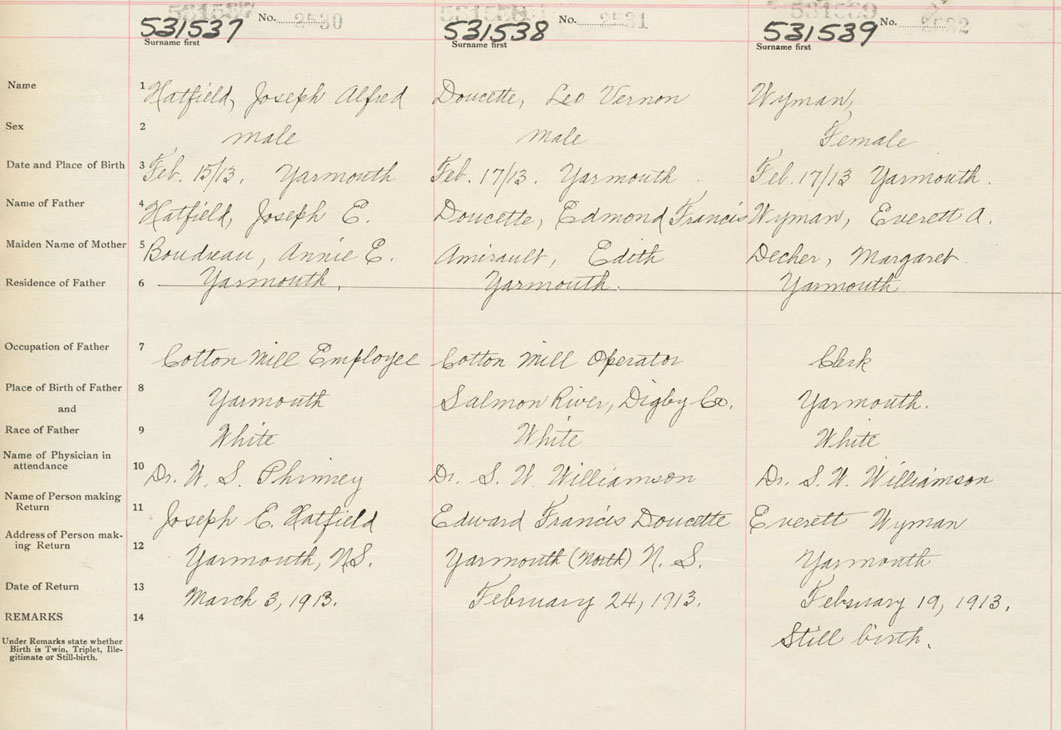 531537 No. 2530 531538 No. 2531 531539 No. 2532
531537 531538 531539
Surname first Surname first Surname first
Name 1 Hatfield, Joseph Alfred Doucette, Leo Vernon Wyman,
Sex 2 male male Female
Date and Place of Birth 3 Feb. 15/13. Yarmouth Feb. 17/13. Yarmouth Feb. 17/13 Yarmouth.
Name of Father 4 Hatfield, Joseph E. Doucette, Edmond Francis Wyman, Everett A.
Maiden Name of Mother 5 Boudreau, Annie E. Amirault, Edith Decher, Margaret
Residence of Father 6 Yarmouth. Yarmouth. Yarmouth
Occupation of Father 7 Cotton Mill Employee Cotton Mill Operator Clerk
Place of Birth of Father 8 Yarmouth Salmon River, Digby Co. Yarmouth.
and
Race of Father 9 White White White
Name of Physician in
attendance 10 Dr. W. S. Phinney Dr. S. W. Williamson Dr. S. W. Williamson
Name of Person making
Return 11 Joseph E. Hatfield Edward Francis Doucette Everett Wyman
Address of Person mak-
ing Return 12 Yarmouth, N.S. Yarmouth (North) N. S. Yarmouth
Date of Return 13 March 3, 1913. February 24, 1913. February 19, 1913.
REMARKS 14 Still birth.
Under Remarks state whether
Birth is Twin, Triplet, Ille-
gitimate or Still-birth.